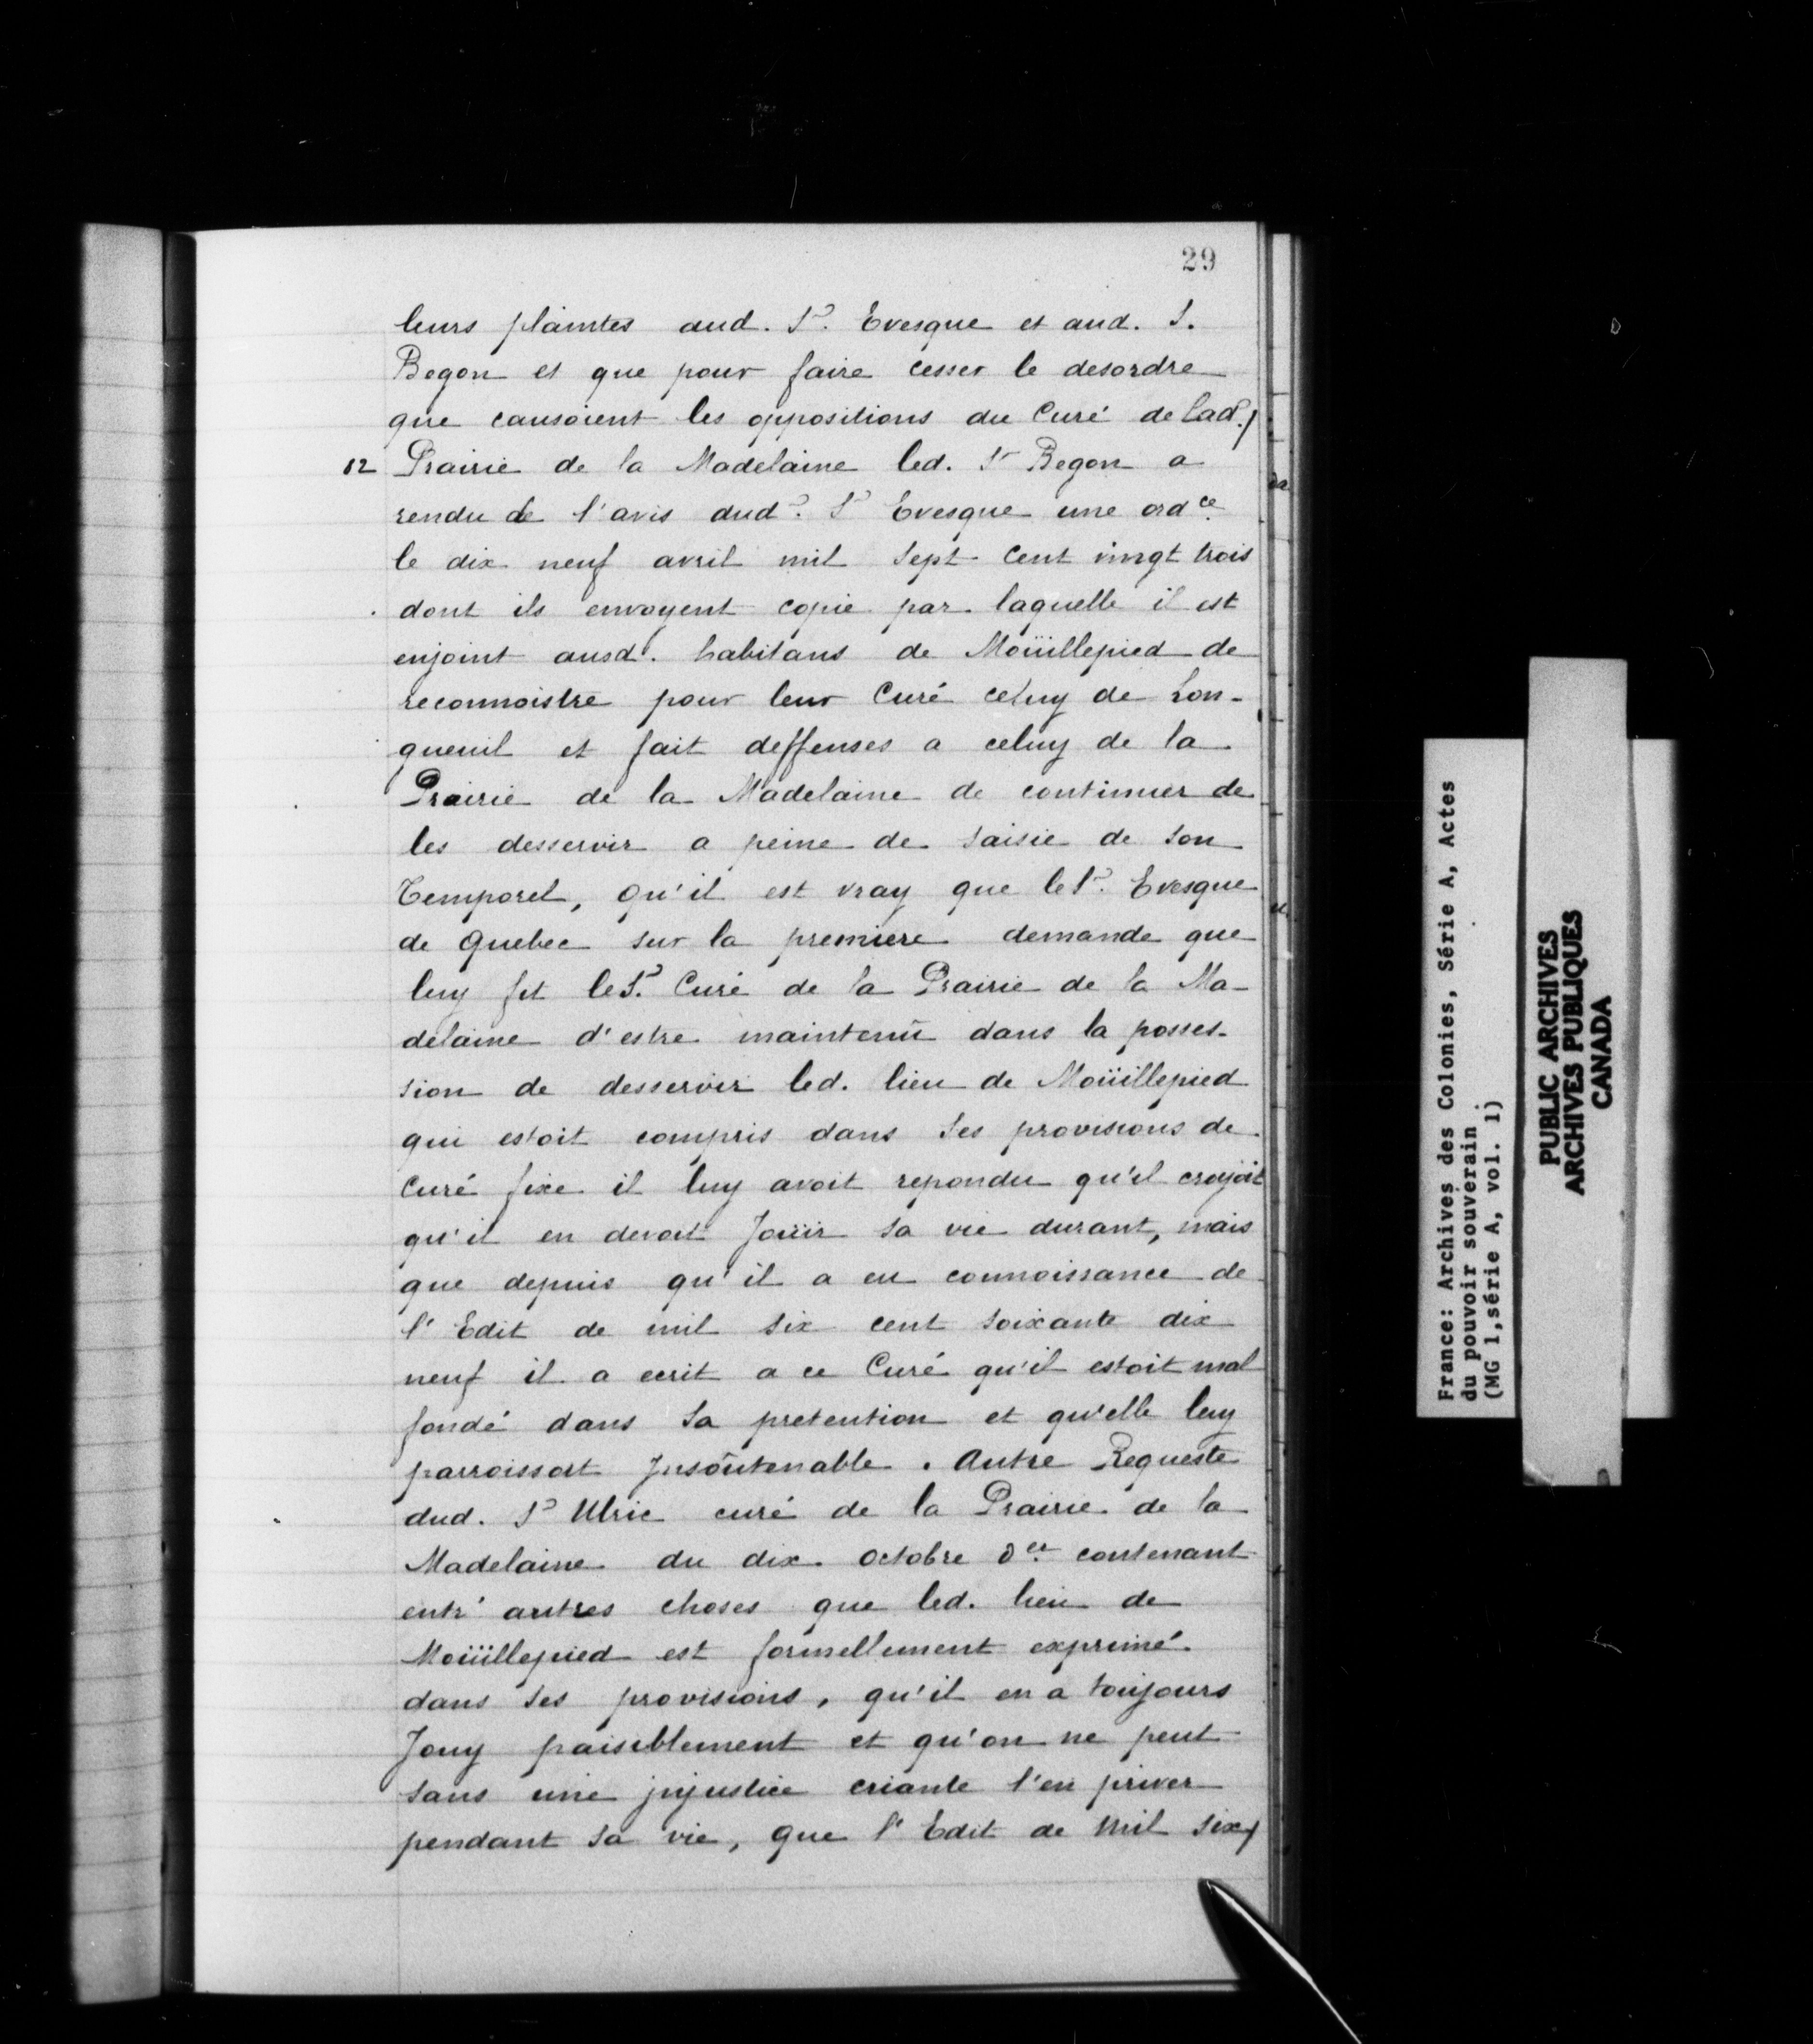 29
leurs plaintes aud. Sr. Evesque et aud. S.
Begon et que pour faire cesser le desordre
que causoient les oppositions du Curé de lad./
12 Prairie de la Madelaine led. Sr Begon a
rendu de l'avis dud. Sr Evesque une ordce
le dix neuf avril mil Sept Cent vingt trois
dont ils envoyent copie par laquelle il est
enjoint ausd. habitans de Moüillepied de
reconnoistre pour leur Curé celuy de Lon-
gueuil et fait deffenses a celuy de la
Prairie de la Madelaine de continuer de
les desservir a peine de saisie de son
Temporel, qu'il est vray que le Sr. Evesque
de Quebec sur la premiere demande que
luy fit le Sr. Curé de la Prairie de la Ma-
delaine d'estre maintenü dans la posses-
sion de desservir led. lieu de Moüillepied
qui estoit compris dans Ses provisions de
Curé fixe il luy avoit repondu qu'il croyoit
qu'il en devoit Joüir sa vie durant, mais
que depuis qu'il a eu connoissance de
l'Edit de mil six cent soixante dix
neuf il a ecrit a ce Curé qu'il estoit mal
fondé dans Sa pretention et qu'elle luy
parroissoit Insoutenable. Autre Requeste
dud. Sr Ulric curé de la Prairie de la
Madelaine du dix octobre der contenant
entr'autres choses que led. lieu de
Moüillepied est formellement exprimé
dans Ses provisions, qu'il en a toujours
Jouy paisiblement et qu'on ne peut
sans une injustice criante l'en priver
pendant Sa vie, que l'Edit de Mil Six/
France: Archives des Colonies, Série A, Actes
du pouvoir souverain
(MG 1,série A, vol. 1)
PUBLIC ARCHIVES
ARCHIVES PUBLIQUES
CANADA